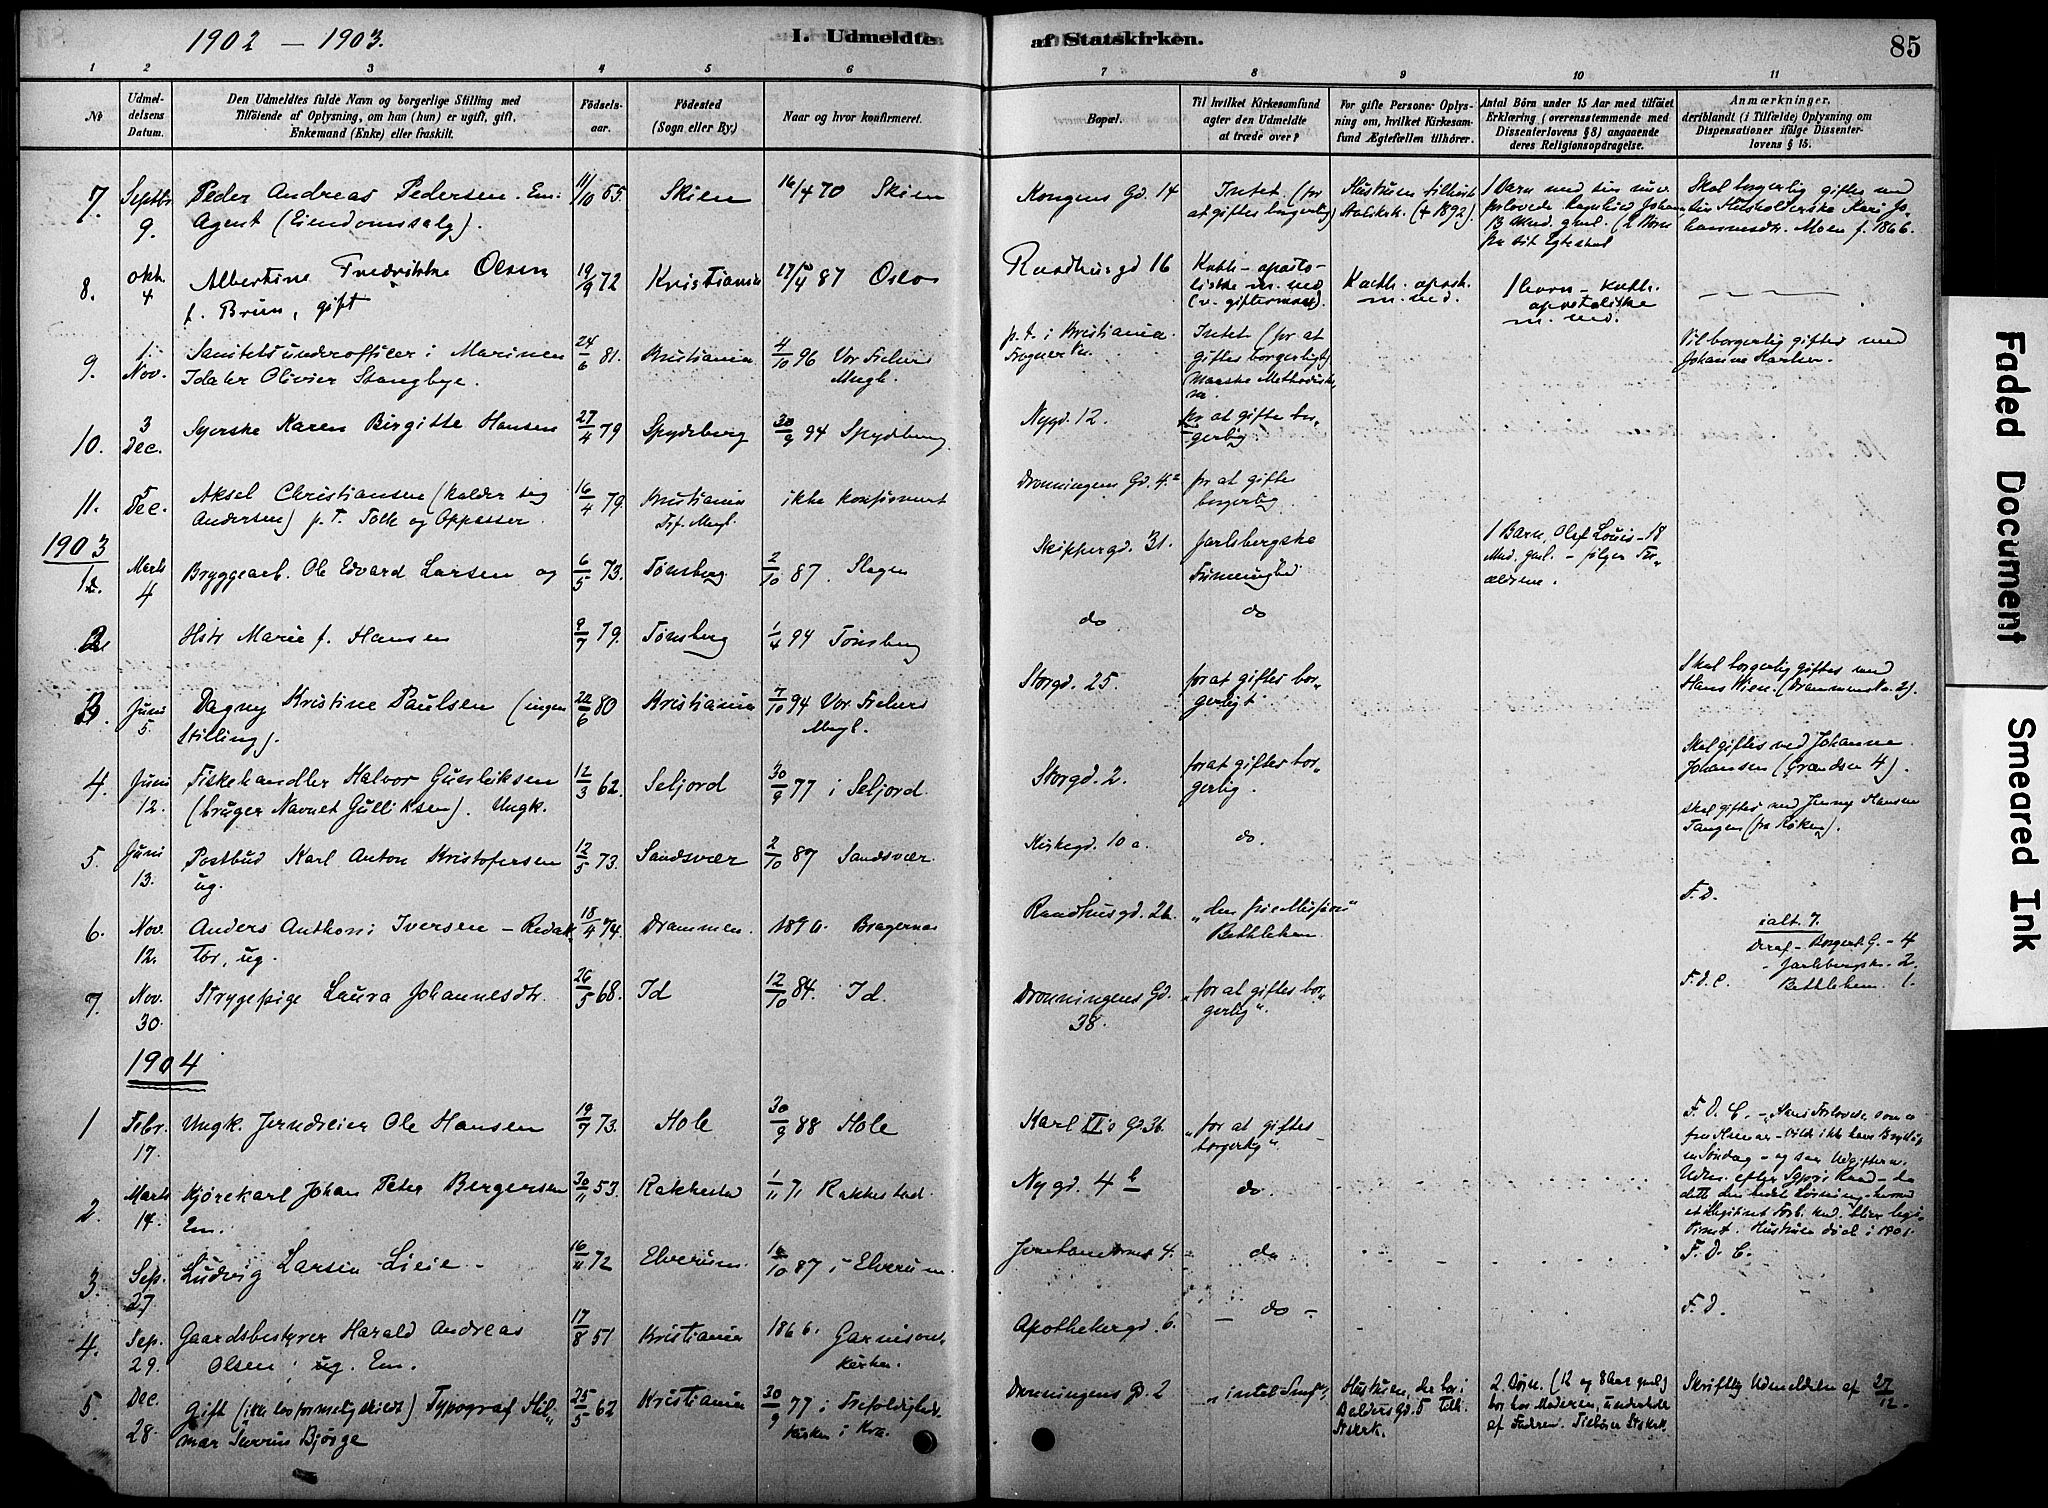 1902 – 1903.
I. Udmeldte
af Statskirken.
85
1 2 3 4 5 6 7 8 9 10 11
No
Udmel-
delsens
Datum.
Den Udmeldtes fulde Navn og borgerlige Stilling med
Tilföiende af Oplysning, om han (hun) er ugift, gift,
Enkemand (Enke) eller fraskilt.
Födsels-
aar.
Födested
(Sogn eller By.)
Naar og hvor konfirmeret.
Bopæl.
Til hvilket Kirkesamfund
agter den Udmeldte
at træde over?
For gifte Personer Oplys-
ning om, hvilket Kirkesam-
fund Ægtefællen tilhörer.
Antal Börn under 15 Aar med tilföiet
Erklæring (overensstemmende med
Dissenterlovens § 8) angaaende
deres Religionsopdragelse.
Anmærkninger,
deriblandt (i Tilfælde) Oplysning om
Dispensationer ifölge Dissenter-
lovens § 15.
7. Septbr 9. Peder Andreas Pedersen. Em.
Agent (Eiendomssalg).
11/10 55. Skien 16/4 70 Skien
Kongens Gd. 14 Intet. (for
at giftes borgerlig)
Hustruen tilhørte
Statsk. (+ 1892).
1 Barn med sin nuv.
Skal borgerlig giftes med
sin Husholderske Kari Jo-
hannesdr. Moen f. 1866.
8. Okt. 4 Albertine Fredrikke Olsen
f. Brun, gift
19/9 72 Kristiania 17/4 87 Oslo
Raadhusgd 16 Kath- aposto-
liske m. med
(v. giftermaal).
Kath. apost.
m. med.
1 barn – kath.
apostoliske
m. med.
9. 1. Nov. Sanitetsunderofficer i Marinen
Idaler Olivier Stangbye.
24/6 81. Kristiania 4/10 96 Vor Frelsers
Mngl.
p. t. i Kristiania
Frogner
Intet (for at
giftes borgerligt)
Maaske Methodister
Vil borgerlig giftes med
Johanne Karlsen.
10. 3 Dec. Syerske Karen Birgitte Hansen 27/4 79 Spydeberg 30/9 94 Spydeberg
Nygd. 12. for at gifte bor-
gerlig
11. 5 Dec. Aksel Christiansen (kalder sig
Andersen) p. T. Tolk og Oppasser.
16/4 79. Kristiania
Trf. Mngl.
ikke konfirmert
Dronningens Gd. 4a for at gifte
borgerlig
1903
1. Marts 4 Bryggearb. Ole Edvard Larsen og 6/5 73. Tønsberg 2/10 87. Slagen
Skippergd. 31. Jarlsbergske
Frimenighed
1 Barn, Olef Louis – 18
Mnd. gml. – følger For-
ældrene.
2. Hstr Marie f. Hansen 9/7 79. Tønsberg 1/4 94 Tønsberg
do do
3. Juni 5. Dagny Kristine Paulsen (ingen
Stilling).
22/6 80 Kristiania 7/10 94 Vor Frelsers
Mngl.
Storgd. 25. for at giftes bor-
gerligt
Skal borgerlig giftes med
Hans Wien. (Drammensv. 2).
4. Juni 12. Fiskehandler Halvor Gunleiksen
(bruger Navnet Gulliksen). Ungk.
12/3 62. Seljord 30/9 77 i Seljord.
Storgd. 2. for at giftes bor-
gerlig.
Skal giftes med Johanne
Johansen (Grændsen 4).
5. Juni 13. Postbud Karl Anton Kristofersen
ug.
12/5 73. Sandsvær 2/10 87 Sandsvær.
Kirkegd. 10 a. do.
skal giftes med Jenny Hansen
Tangen (fra Røken).
6. Nov. 12. Anders Anthoni Iversen – Redak-
tør, ug.
18/4 74. Drammen. 1890. Bragernes
Raadhusgd. 26. "den frie Mission"
Bethlehem
F. D.
ialt. 7.
Deraf – Borgerl. G. – 4
– Jarlsbergsk. 2.
Bethlehem. 1.
7. Nov. 30. Strygepige Laura Johannesdtr. 26/5 68. Id 12/10 84. Id.
Dronningens Gd.
38.
"for at giftes bor-
gerlig".
F. D. C.
1904
1 Febr. 17. Ungk. Jerndreier Ole Hansen 19/9 73. Hole 30/9 88 Hole
Karl XIIs Gd 36. "for at giftes
borgerlig".
F. D. C. – Hans Forlovede som er
fra Hamar – vilde ikke have Bryllup
en Søndag – og saa
2. Marts 14. Kjørekarl Johan Peter Bergersen
Em.
30/11 53. Rakkestad 1/11 71 Rakkestad.
Nygd. 4 b do.
Hustruen død i 1901.
3. Sep. 27. Ludvig Larsen Lieie – 16/11 72 Elverum. 16/10 87 i Elverum.
4. do F. D. C.
4. Sep. 29. Gaardsbestyrer Harald Andreas
Olsen, ug. Em.
17/8 51 Kristiania 1866. Garnisons-
kirken.
Apothekergd. 6. do – F. D.
5. Dec. 28. Gift (ikke lovformelig skildt) Typograf Hil-
mar Severin Bjørge
25/5 62 Kristiania 30/9 77 i Trefoldigheds
kirken i Kra.
Dronningens Gd. 2 "intet Smf".
Hustruen, der bor i
Baldersgd. 5 tilh.
Statsk.
2 Børn. (12 og 8 Aar gml.)
bor hos Moderen, underholdt
af Faderen. Tilhører Statsk.
Skriftlig Udmeldelse af 27/12.
Faded Document
Smeared Ink